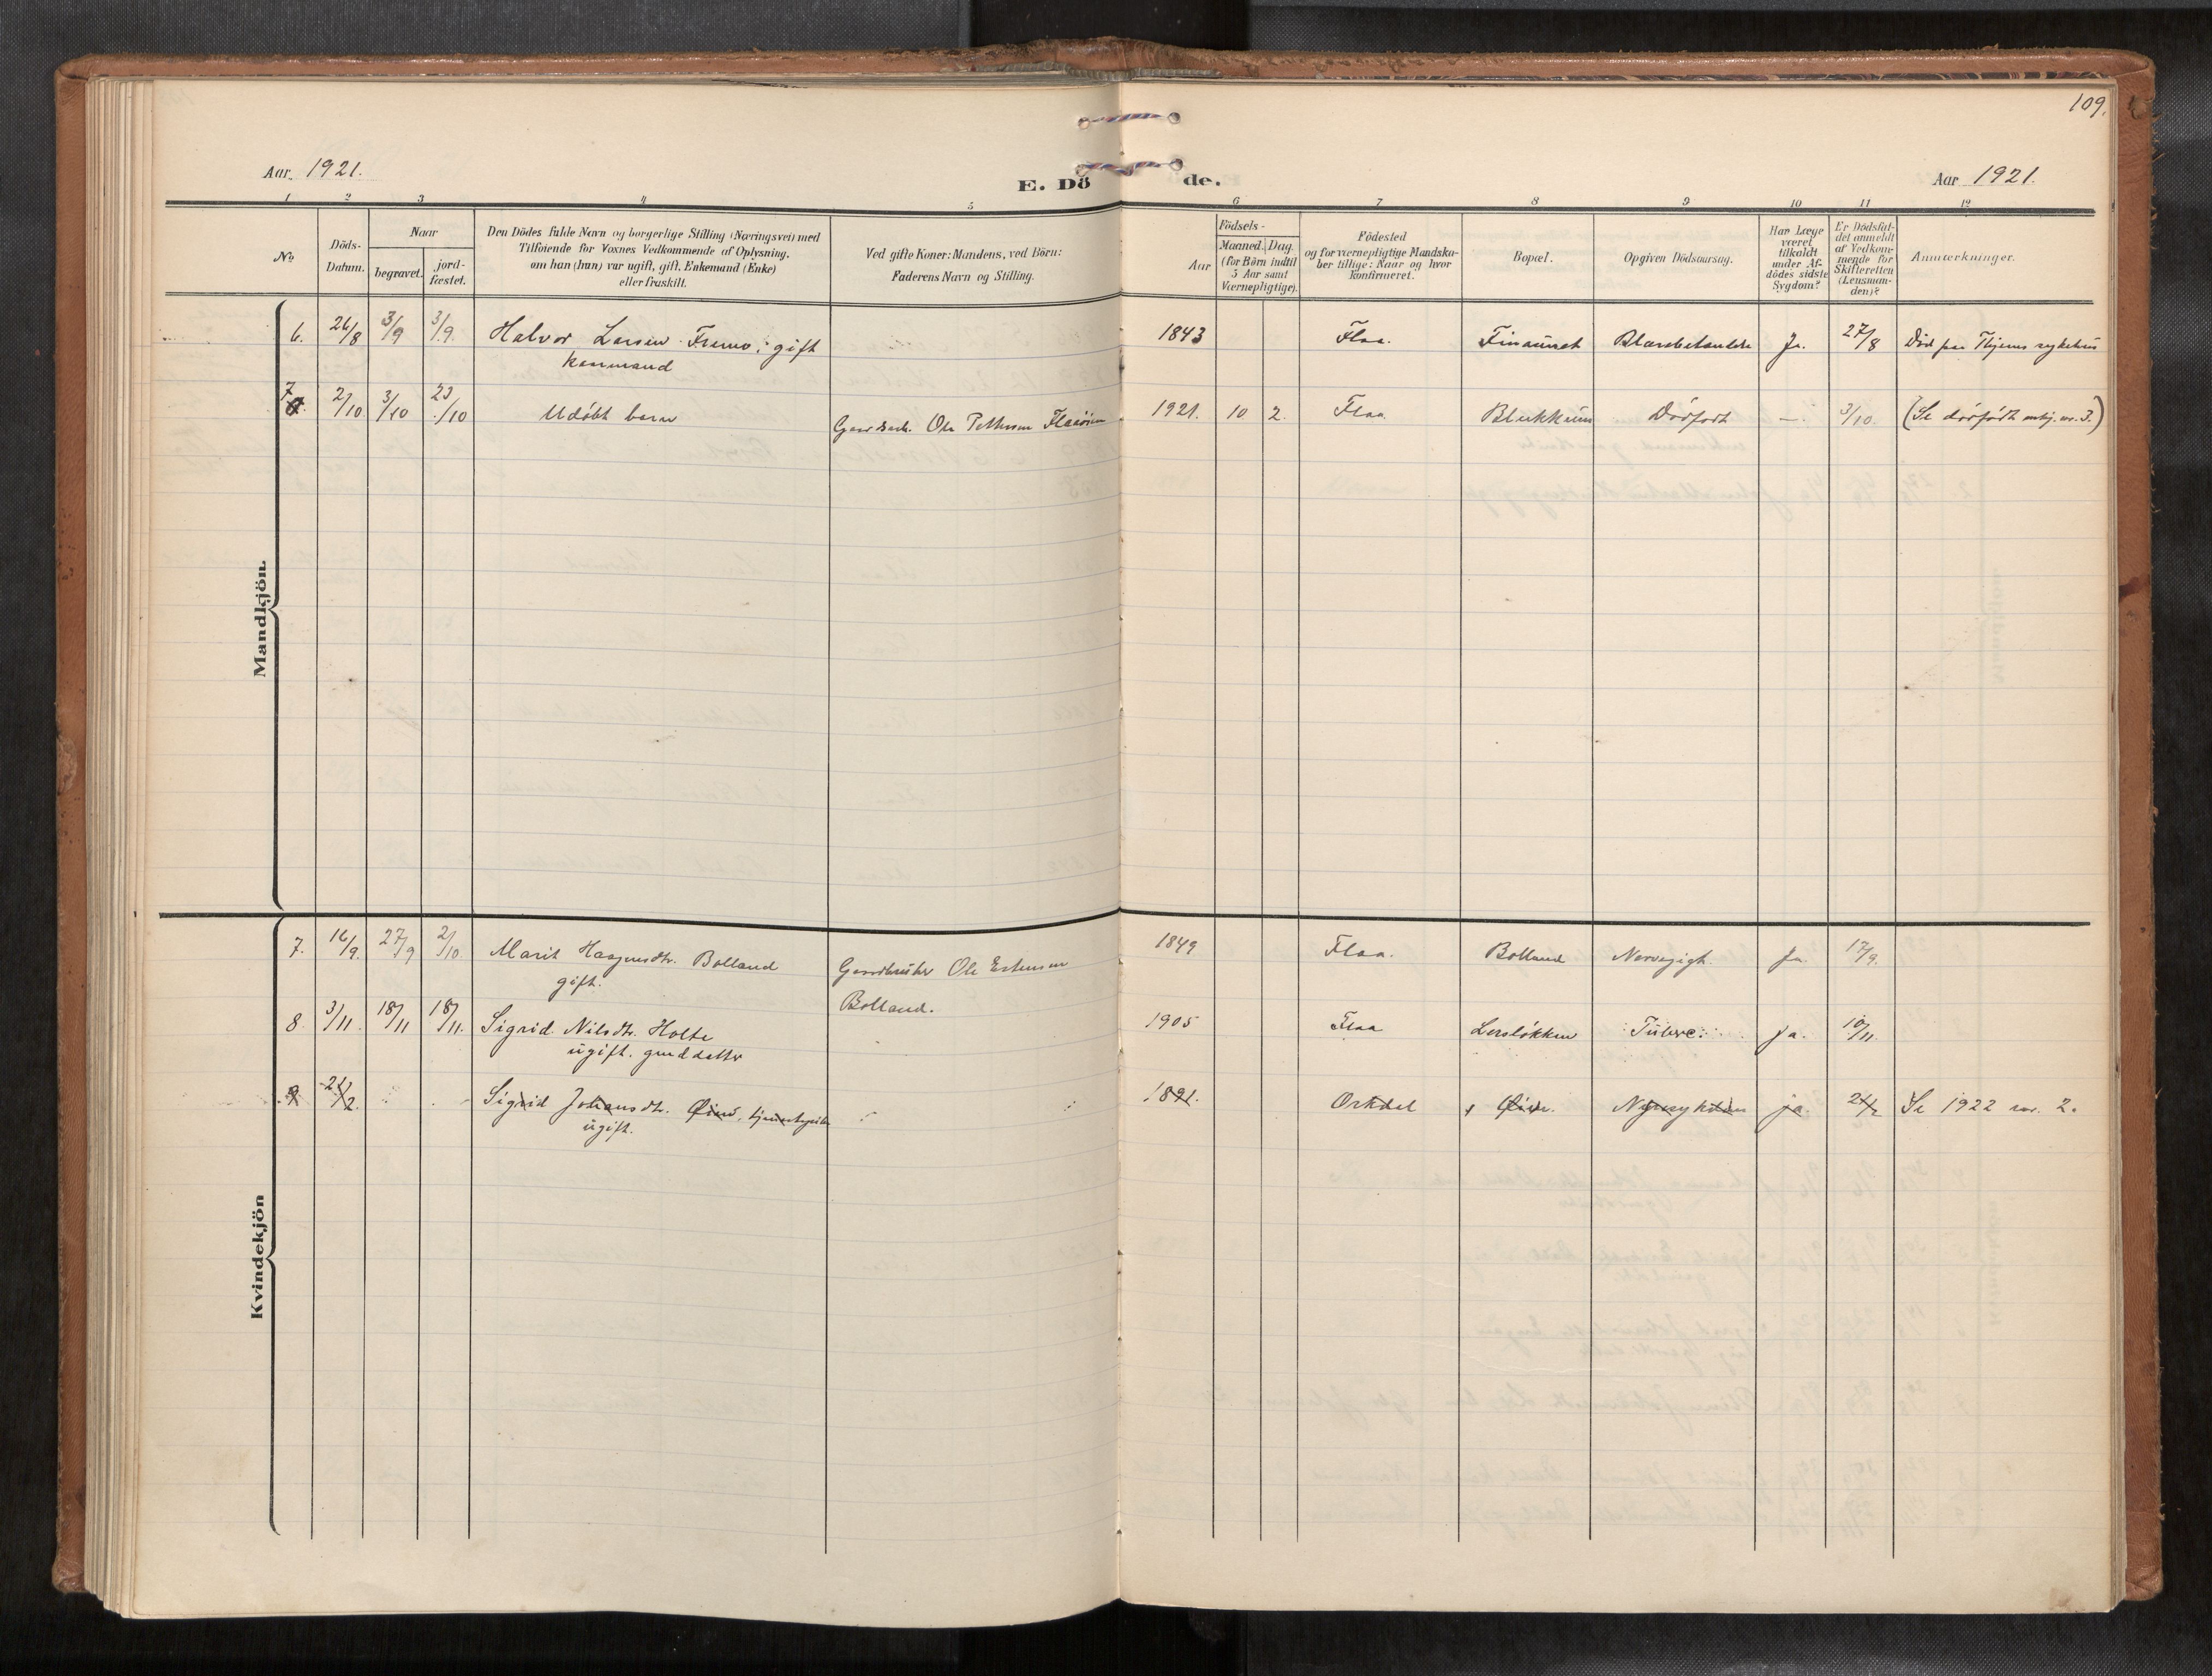 109.
Aar 1921.
E. Dö de.
Aar 1921.
1 2 3 4 5 6 7 8 9 10 11 12
No
Döds-
Datum.
Naar
begravet.
jord-
fæstet.
Den Dödes fulde Navn og borgerlige Stilling (Næringsvei) med
Tilföiende for Voxnes Vedkommende af Oplysning,
om han (hun) var ugift, gift, Enkemand (Enke)
eller fraskilt.
Ved gifte Koner: Mandens, ved Börn:
Faderens Navn og Stilling.
Födsels-
Aar
Maaned. Dag.
(for Börn indtil
5 Aar samt
Værnepligtige).
Födested
og for værnepligtige Mandska-
ber tillige: Naar og hvor
konfirmeret.
Bopæl.
Opgiven Dödsaarsag.
Har Læge
været
tilkaldt
under Af-
dödes sidste
Sygdom?
Er Dödsfal-
det anmeldt
af Vedkom-
mende for
Skifteretten
(Lensman-
den)?
Anmærkninger.
Mandkjön.
6. 26/8 3/9 3/9. Halvor Larsen Fremo, gift 1843 Flaa. Finaunet Ja. 27/8 Död paa sykehus
kaarmand
7. 2/10. 3/10 23/10 Udöbt barn Ole Flaaöien 1921. 10 2. Flaa. Blekkum Dödfödt — 3/10. (Se dödfödt nr. 3.)
Kvindekjön
7. 16/9. 27/9 2/10. Marit Haagensdtr. Bolland Gaardbruker Ole Estensen 1849 Flaa. Bolland Nervegigt. Ja. 17/9.
gift.
Bolland.
8. 3/11. 18/11 18/11. Sigrid Nilsdtr. Holte 1905 Flaa Lersløkken Tuberc. Ja. 10/11
ugift. gmd datter
9 Sigrid Johansdtr. Øien, tjenestepike 1891. Orkdal Øien. Nyresykdom ja. Se 1922 nr. 2.
ugift.